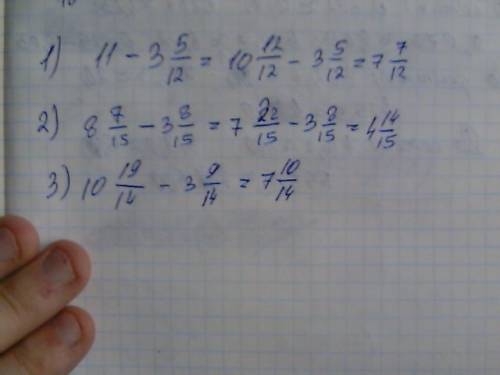 1) 11 - 3 5/12 = 10 12/12 - 3 5/12 = 7 7/12
2) 8 7/15 - 3 8/15 = 7 22/15 - 3 8/15 = 4 14/15
3) 10 19/14 - 3 9/14 = 7 10/14